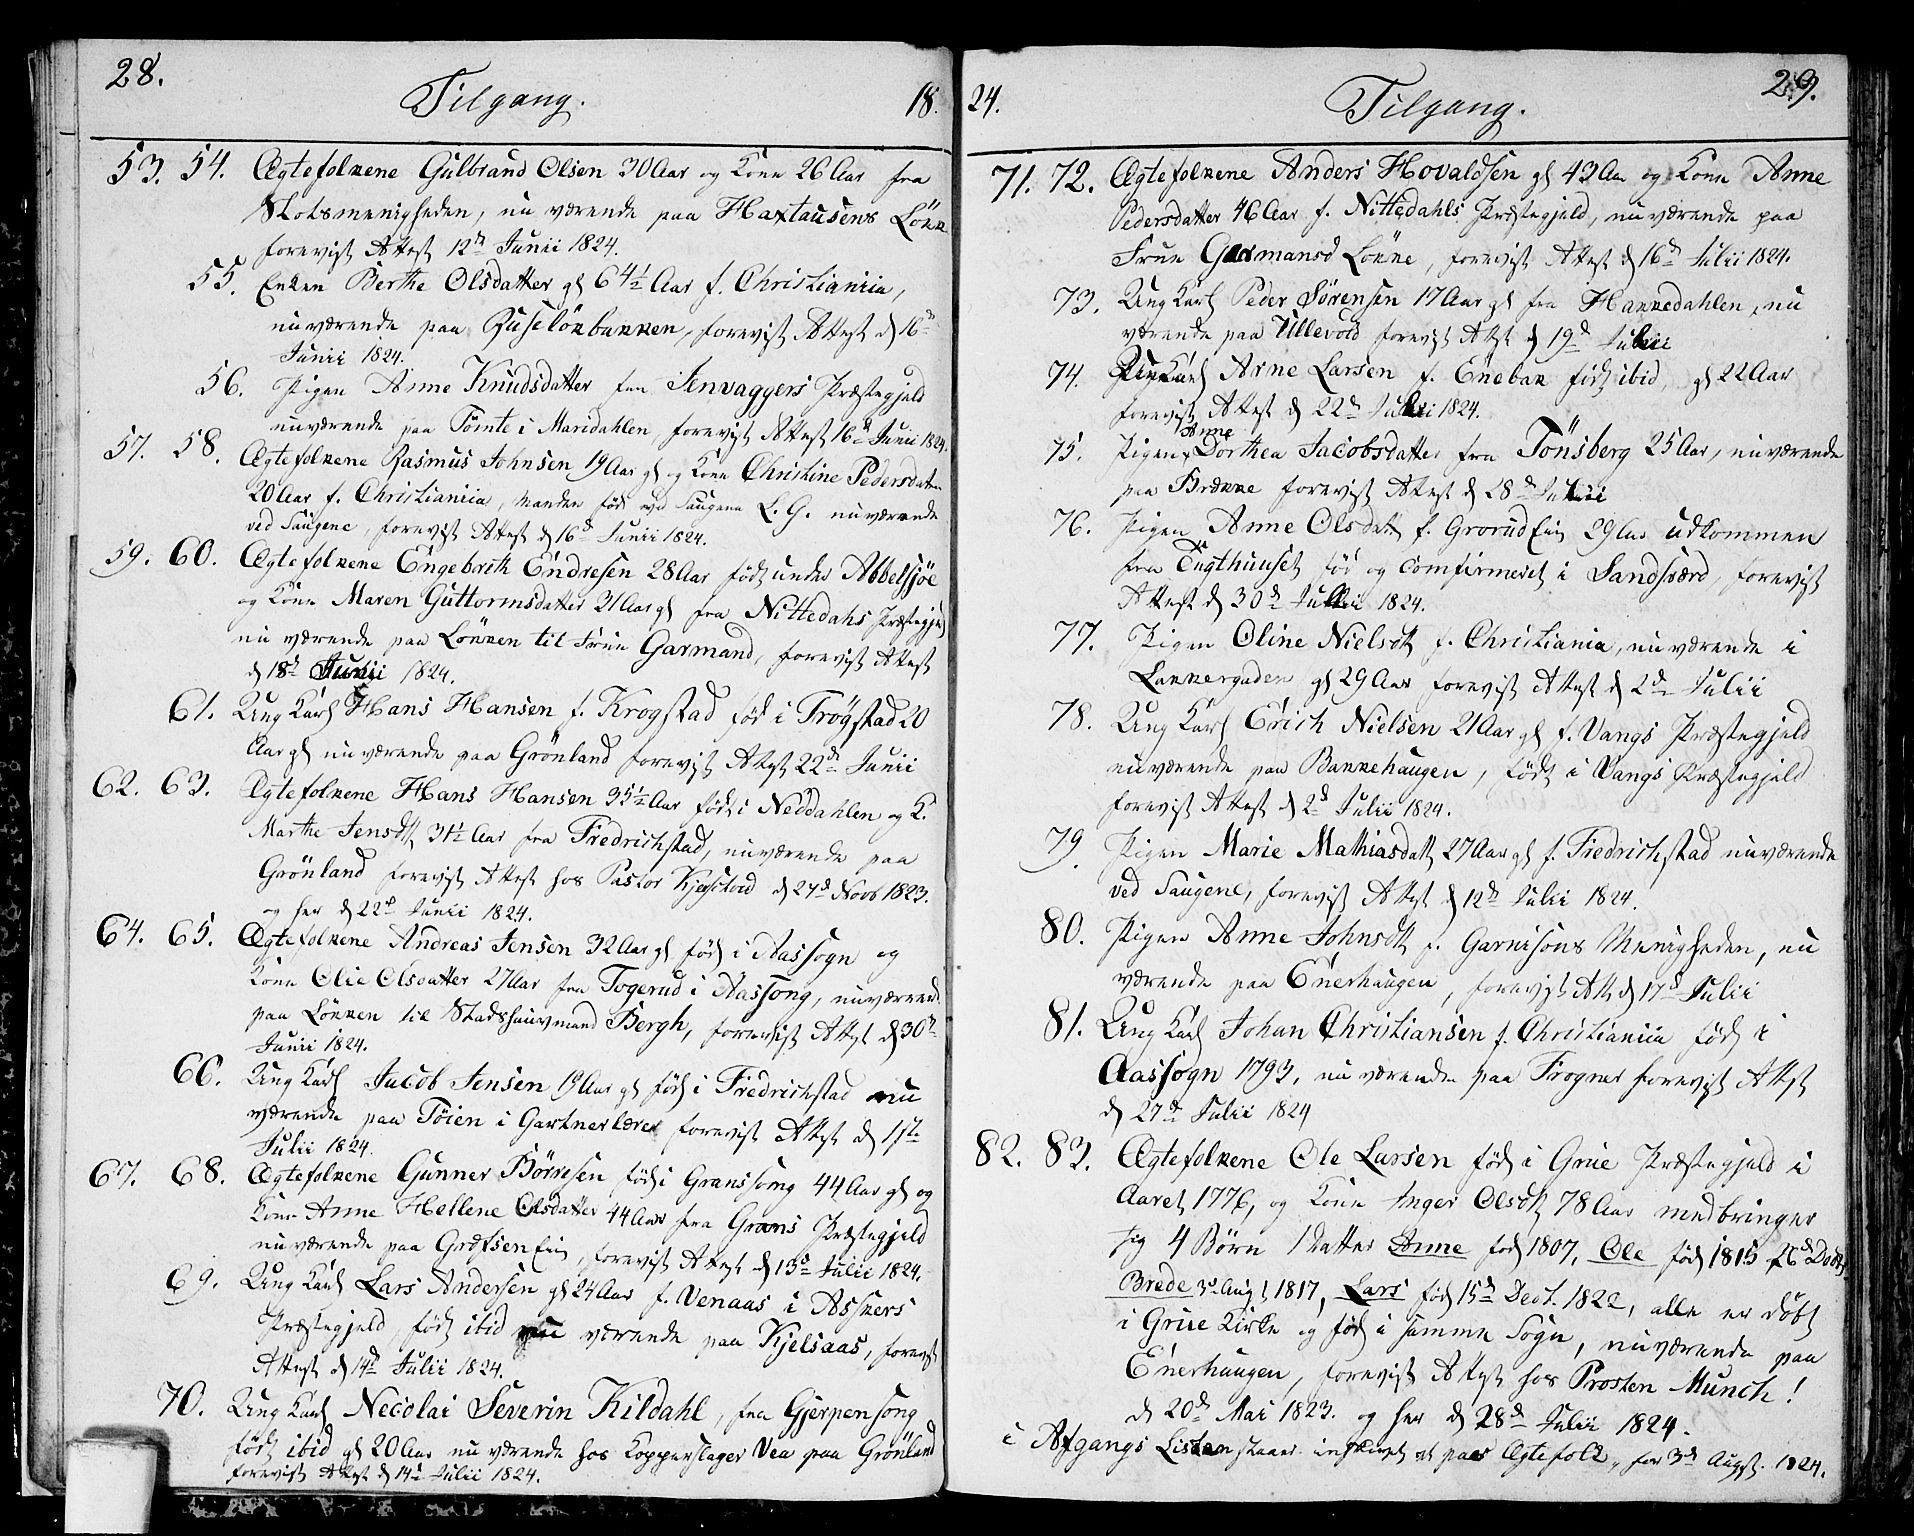 28.
Tilgang.
18
53. 54. Ægtefolkene Gulbrand Olsen 30 Aar og Kone 26 Aar fra
Slotsmenigheden, nu værende paa Haxtausens Lökk
forevist Attest 12te Junii 1824.
55. Enken Berthe Olsdatter gl 64½ Aar f. Christianiia,
nuværende paa Ruselökbakken, forevist Attest d 16d
Junii 1824.
56. Pigen Anne Knudsdatter fra Jenvaggers Præstegjeld
nuværende paa Tömte i Maridahlen, forevist Attest 16d Junii 1824.
57. 58. Ægtefolkene Rasmus Johnsen 19 Aar gl og Kone Christine Pedersdatr
20 Aar f. Christianiia, Manden föd ved Saugene L. G. nuværende
ved Saugene, forevist Attest d 16d Junii 1824.
59. 60. Ægtefolkene Engebreth Endresen 28 Aar födt under Abbelsjöe
og Kone Maren Guttormsdatter 31 Aar gl fra Nittedahs Præstegjeld
nu værende paa Lökken til Frue Garmand, forevist Attest
d 18d Junii 1824.
61. Ung Karl Hans Hansen f. Krogstad föd i Trögstad 20
Aar gl nuværende paa Grönland forevist Attest 22d Junii
62. 63. Ægtefolkene Hans Hansen 35½ Aar födt i Neddahlen og K.
Marthe Jensdtt 31½ Aar fra Fredrichstad, nuværende paa
Grönland forevist Attest hos Pastor Kjestad d 27d Novb 1823.
og her d 22d Junii 1824.
64. 65. Ægtefolkene Andreas Jensen 32 Aar gl föd i Aassogn og
Kone Olie Olsdatter 27 Aar fra Togerud i Aassong, nuværend
paa Lökken til Stadshauvmand Bergh, forevist Attest d 30te
Junii 1824.
66. Ung Karl Jacob Jensen 19 Aar gl födt i Fredrichstad nu
værende paa Töien i Gartnerlære forevist Attest d 1ste
Julii 1824.
67. 68. Ægtefolkene Gunner Börresen föd i Granssong 44 Aar gl og
Kone Anne Hellene Olsdatter 44 Aar fra Grans Præstegjeld
nuværende paa Græfsen Eie, forevist Attest d 13d Julii 1824.
69. Ung Karl Lars Andersen gl 24 Aar f. Venaas i Askers
Præstegjeld, födt ibid nu værende paa Kjelsaas, forevist
Attest d 14d Julii 1824.
70. Ung Karl Necolai Severin Kildahl, fra Gjerpensong
födt ibid gl 20 Aar nu værende hos Kopperslager Vea paa Grönland
forevist Attest d 14d Julii 1824.
24.
Tilgang.
29.
71. 72. Ægtefolkene Anders Hovaldsen gl 43 Aar og Kone Anne
Pedersdatter 46 Aar f. Nittedahls Præstegjeld, nuværende paa
Frue Garmansd Lökke, forevist Attest d 16d Julii 1824.
73. Ung Karl Peder Sörensen 17 Aar gl fra Hakkedahlen, nu
værende paa Ullevold forevist Attest d 19d Julii
74. Ung Karl Arne Larsen f. Enebak födt ibid, gl 22 Aar
forevist Attest d 22d Julii 1824.
75. Pigen Anne Dorthea Jacobsdatter fra Tönsberg 25 Aar, nuværende
paa Brække forevist Attest d 28d Julii
76. Pigen Anne Olsdatt f. Grorud Eie 29 Aar udkommen
fra Tugthuuset föd og Comfirmeret i Sandsværd, forevist
Attest d 30d Julii 1824.
77. Pigen Oline Nielsdtt f. Christiania, nuværende i
Lakkergaden gl 29 Aar forevist Attest d 2d Julii
78. Ung Karl Erich Nielsen 21 Aar gl f. Vangs Præstegjeld
nuværende paa Bakkehaugen, födt i Vangs Præstegjeld
forevist Attest d 2d Julii 1824.
79. Pigen Marie Mathiasdatt 27 Aar gl f. Fredrichstad nuværende
ved Saugene, forevist Attest d 12d Julii 1824.
80. Pigen Anne Johnsdtt f. Garnisons Menigheden, nu
værende paa Enerhaugen, forevist Att d 17d Julii
81. Ung Karl Johan Christiansen f. Christianiia föd i
Aassogn 1793, nu værende paa Frogner forevist Attest
d 27d Julii 1824
82. 83. Ægtefolkene Ole Larsen föd i Grue Præstegjeld i
Aaret 1776, og Kone Inger Olsdtt 78 Aar medbringer
sig 4 Börn 1 Datter Anne föd 1807, Ole föd 1815 26d Decbr
Brede 3d Augt 1817, Lars föd 15d Dect. 1822, alle er döbt
i Grue Kirke og föd i samme Sogn, nuværende paa
Enerhaugen, forevist Attest hos Prosten Munch!
d 20d Mai 1823. og her d 28d Julii 1824.
i Afgangs Listen staar indskrevet et par Ægtefolk, for 3d Augst. 1824.